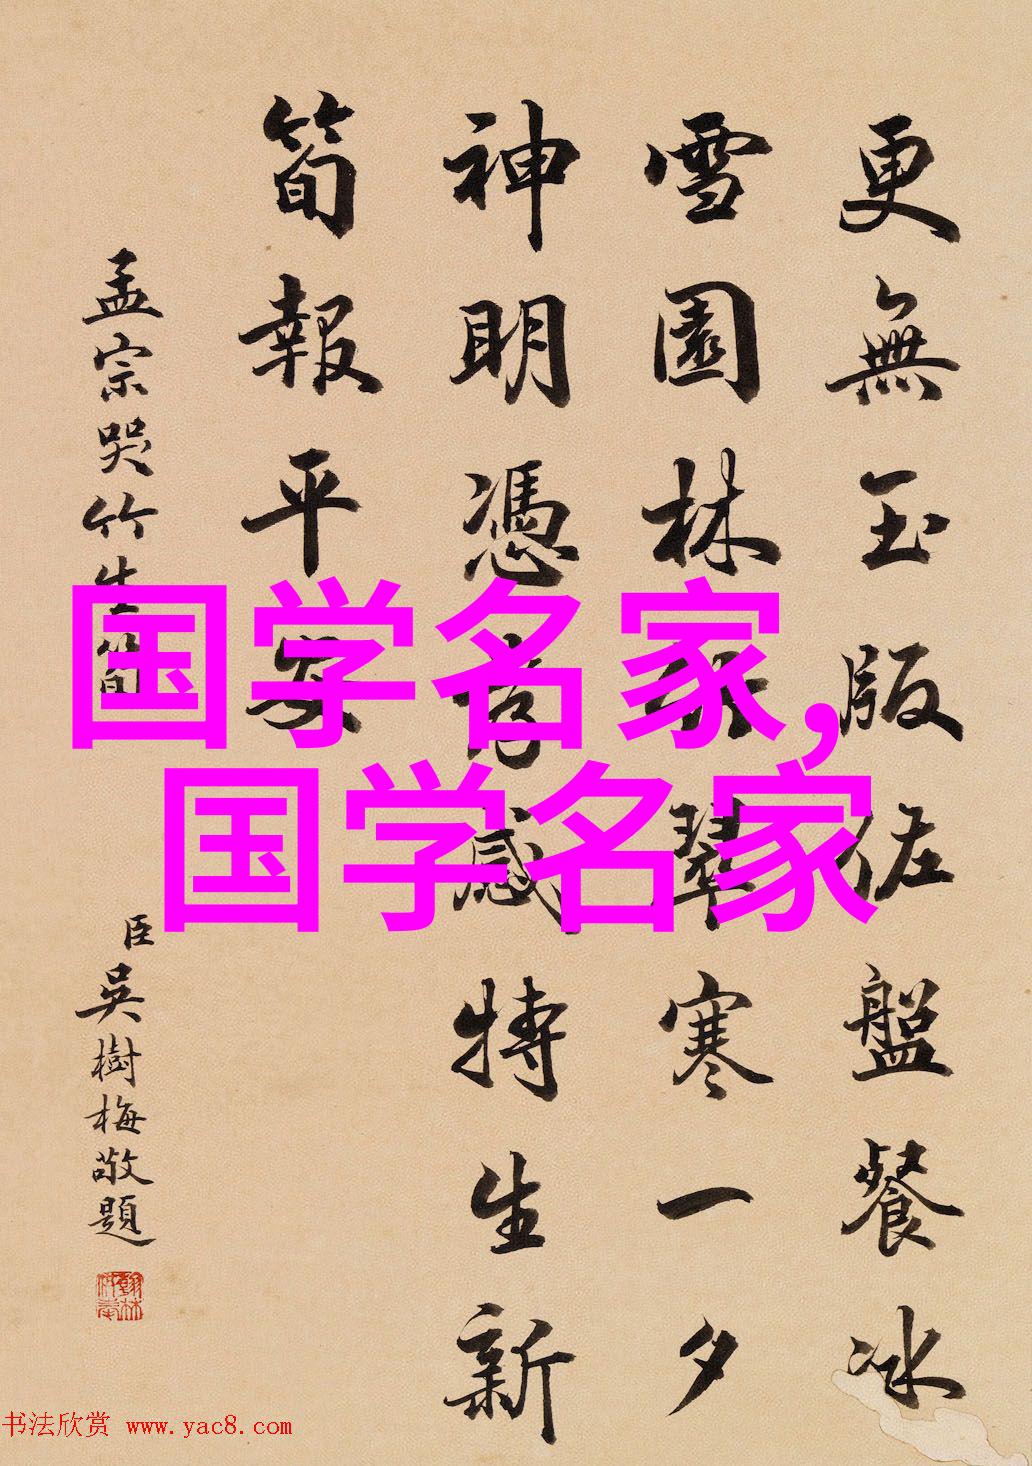 更無玉版佐盤餐冰
雪園林翠寒一夕
神明憑孝感特生新
筍報平安
孟宗哭竹生筍
臣吳樹梅敬題
翰林供奉
国学名家,
国学名家
书法欣赏 www.yac8.com